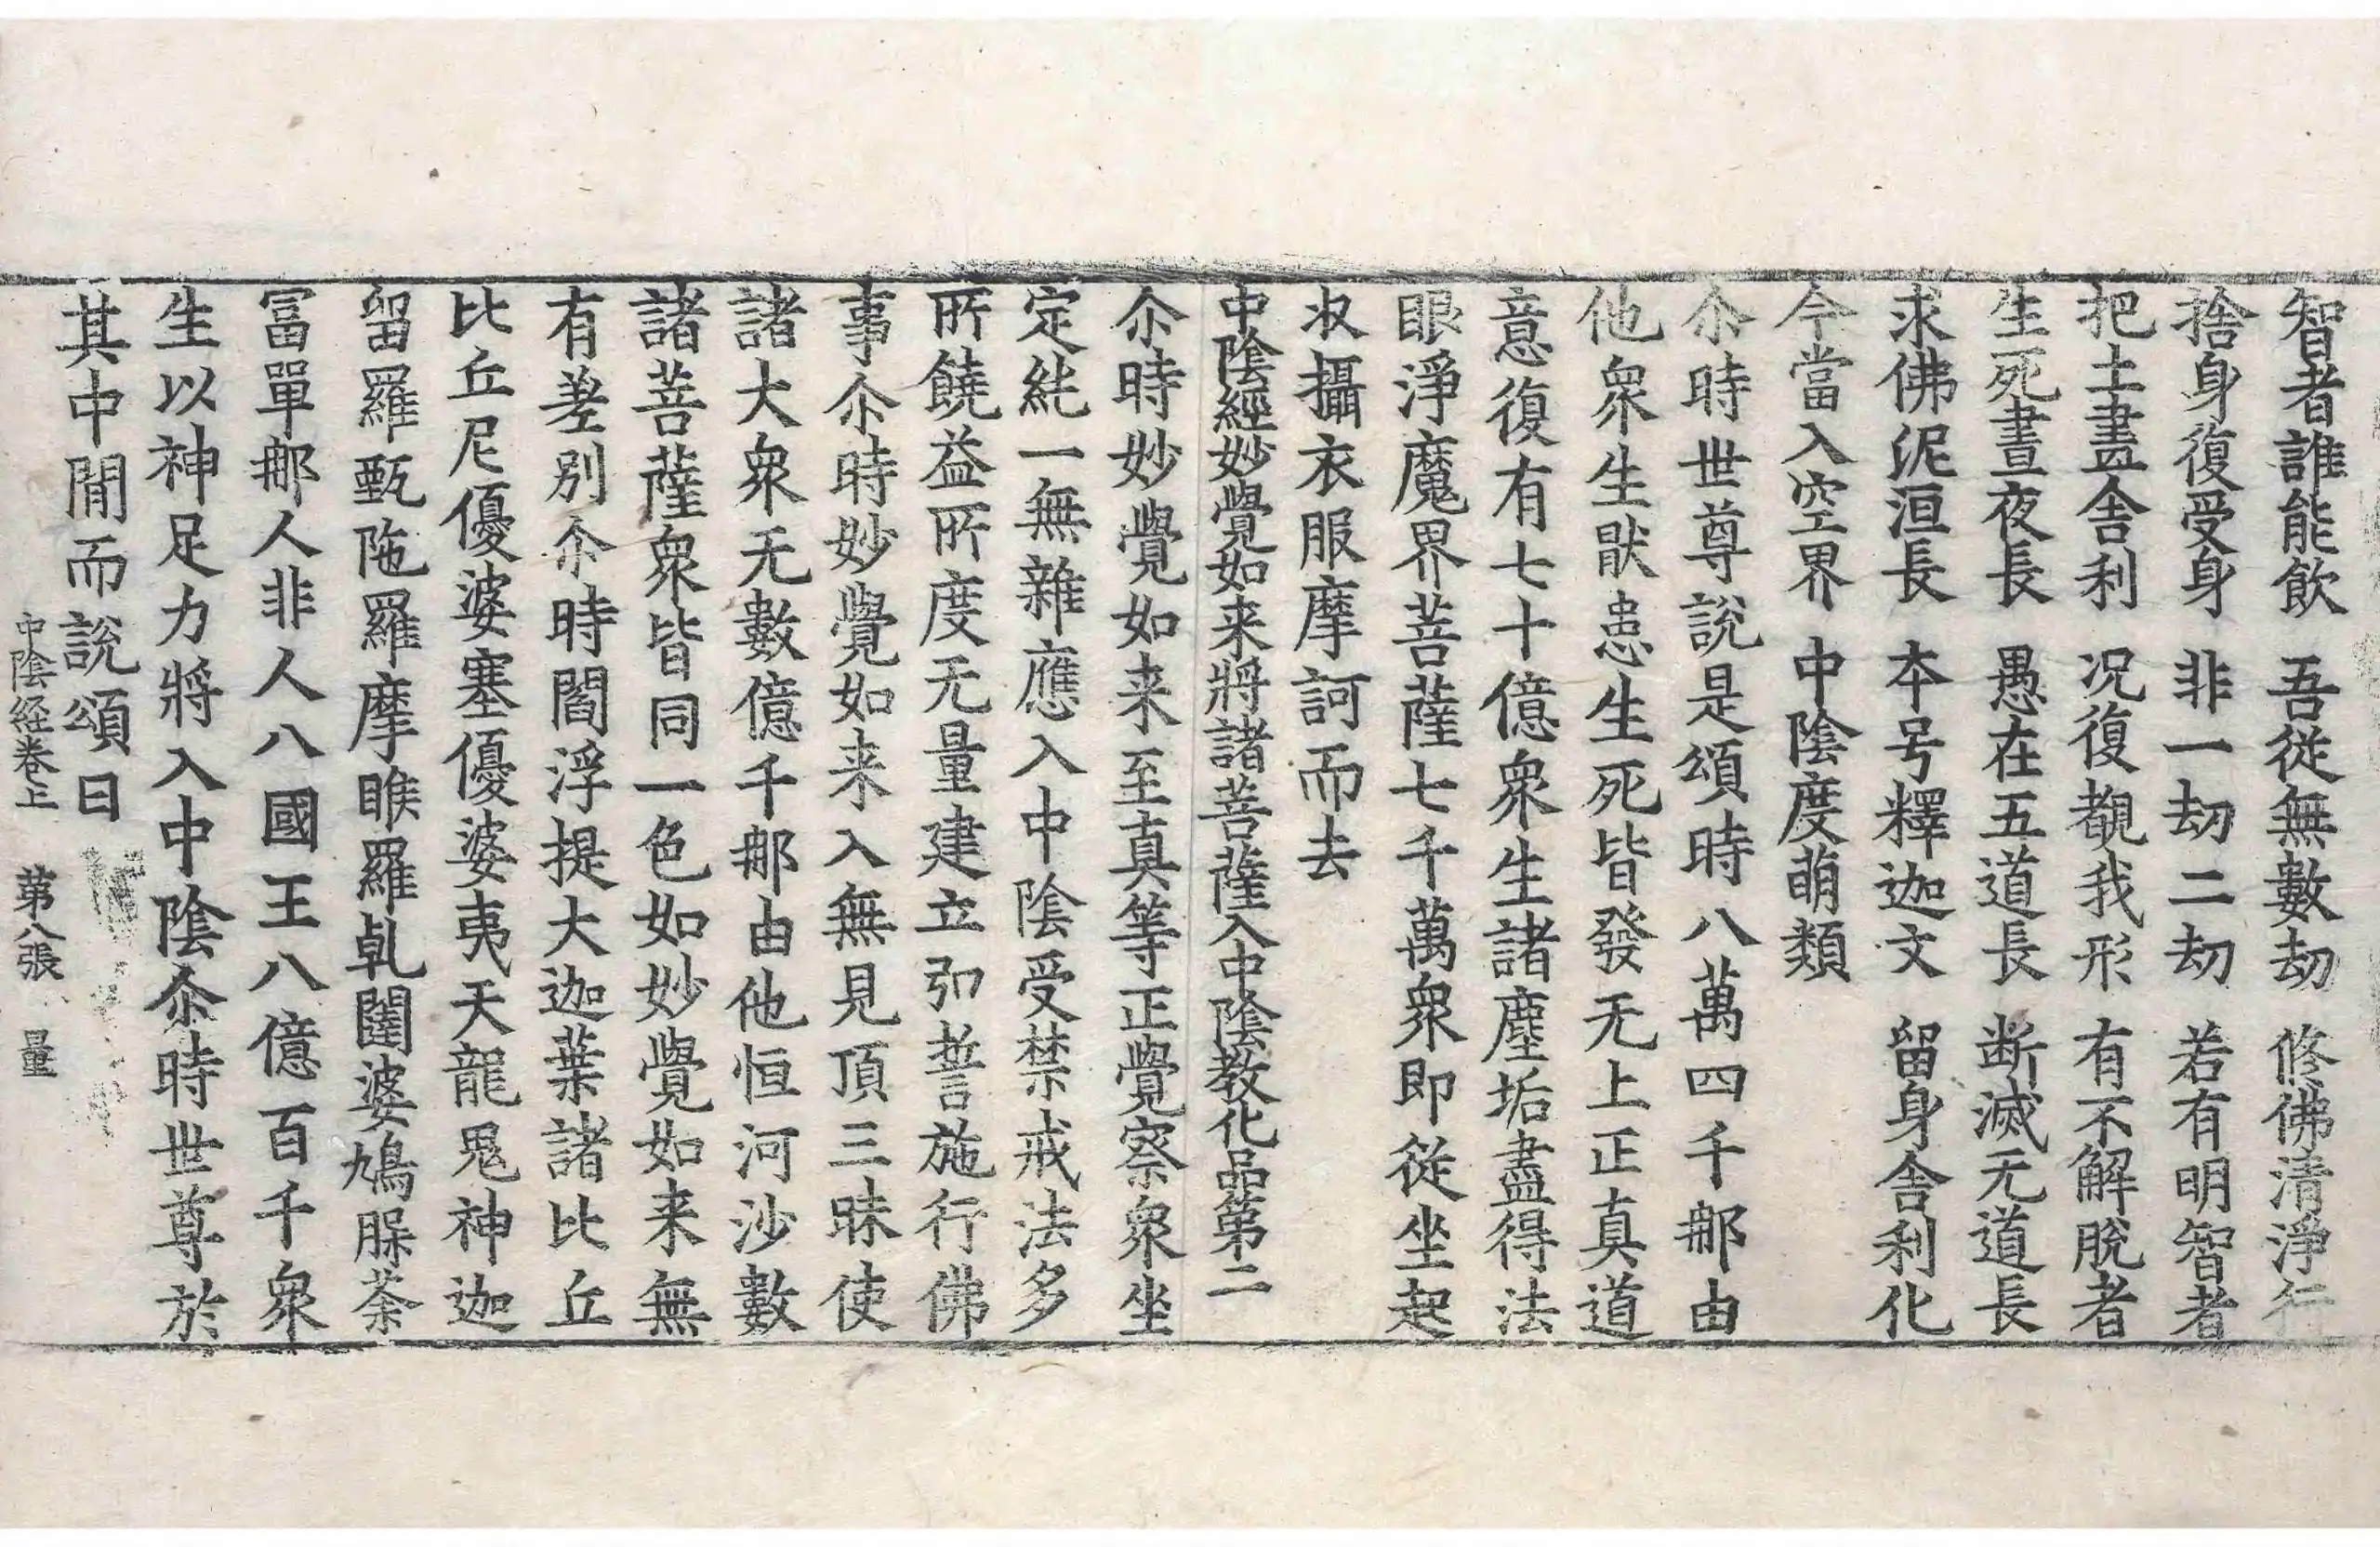 智者誰能飲　吾従無數劫　修佛清淨行
捨身復受身　非一劫二劫　若有明智者
把土盡舍利　況復覩我形　有不解脫者
生死晝夜長　愚在五道長　断滅无道長
求佛泥洹長　本号釋迦文　留身舍利化
今當入空界　中陰度萌類
尒時世尊說是頌時八萬四千那由
他衆生猒患生死皆發无上正真道
意復有七十億衆生諸塵垢盡得法
眼淨魔界菩薩七千萬衆即従坐起
収攝衣服摩訶而去
中陰經妙覺如来將諸菩薩入中陰教化品第二
尒時妙覺如来至真等正覺察衆坐
定純一無雜應入中陰受禁戒法多
所饒益所度无量建立弘誓施行佛
事尒時妙覺如来入無見頂三昧使
諸大衆无數億千那由他恒河沙數
諸菩薩衆皆同一色如妙覺如来無
有差別尒時閻浮提大迦葉諸比丘
比丘尼優婆塞優婆夷天龍鬼神迦
留羅甄陁羅摩睺羅乹闥婆鳩脲荼
冨單那人非人八國王八億百千衆
生以神足力將入中陰尒時世尊於
其中閒而說頌曰
中陰経巻上　第八張　量